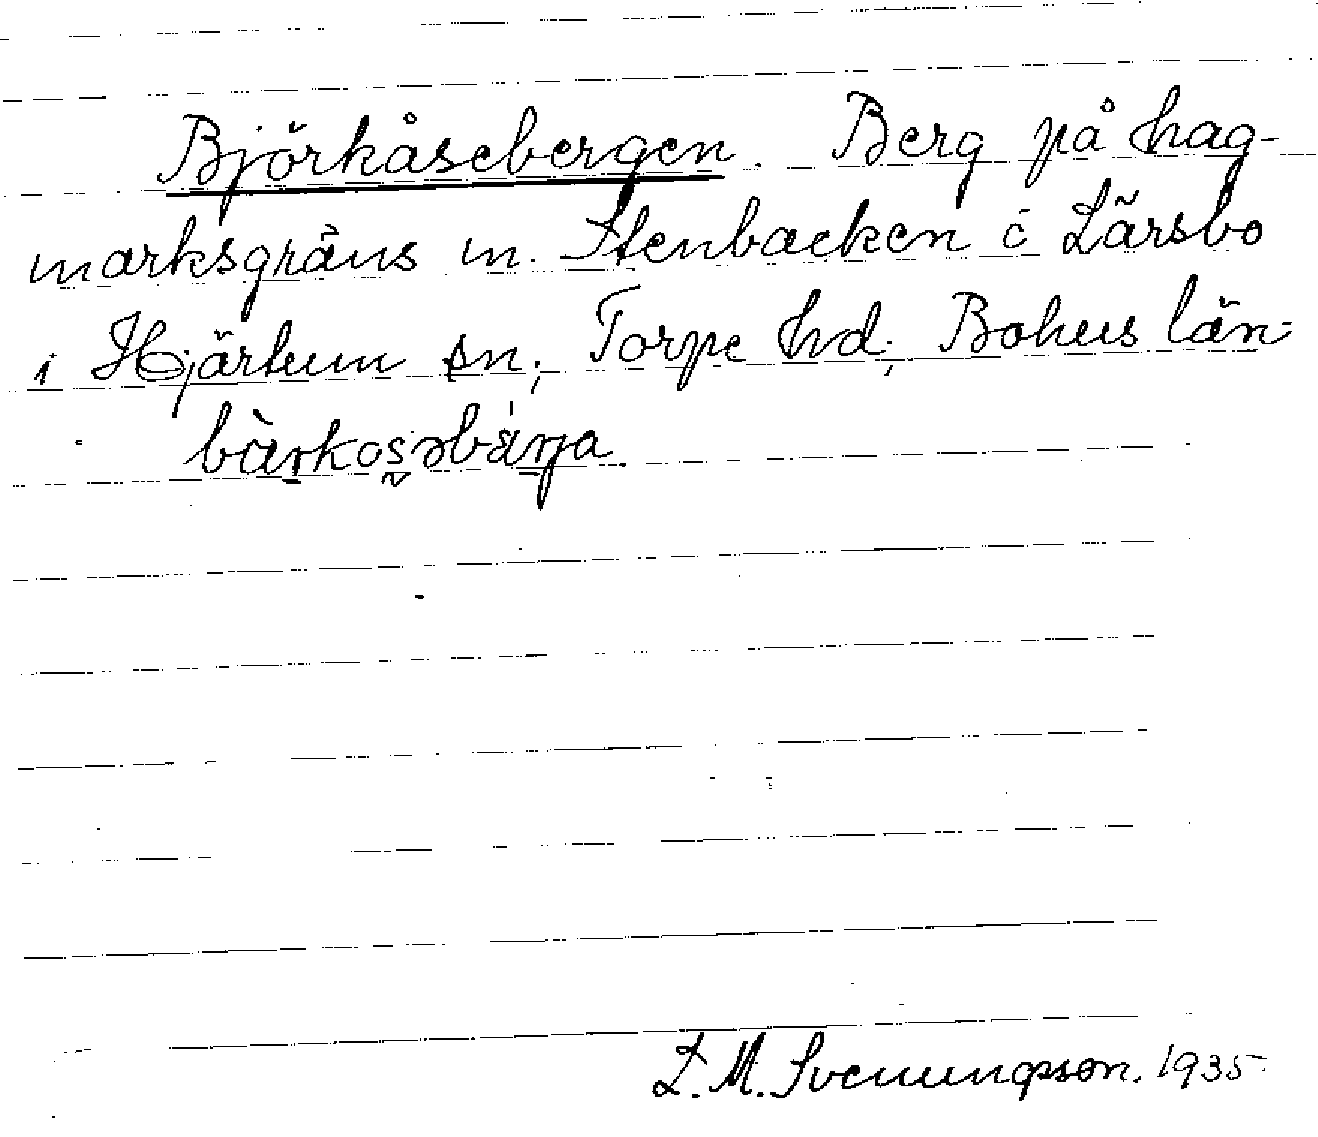 Björkåsebergen. Berg på hag-
marksgräns m. Stenbacken i Lärsbo
i Hjärtum sn; Torpe hd; Bohus län.
bàrkosəbá̈rja.
L. M. Svenungsson. 1935